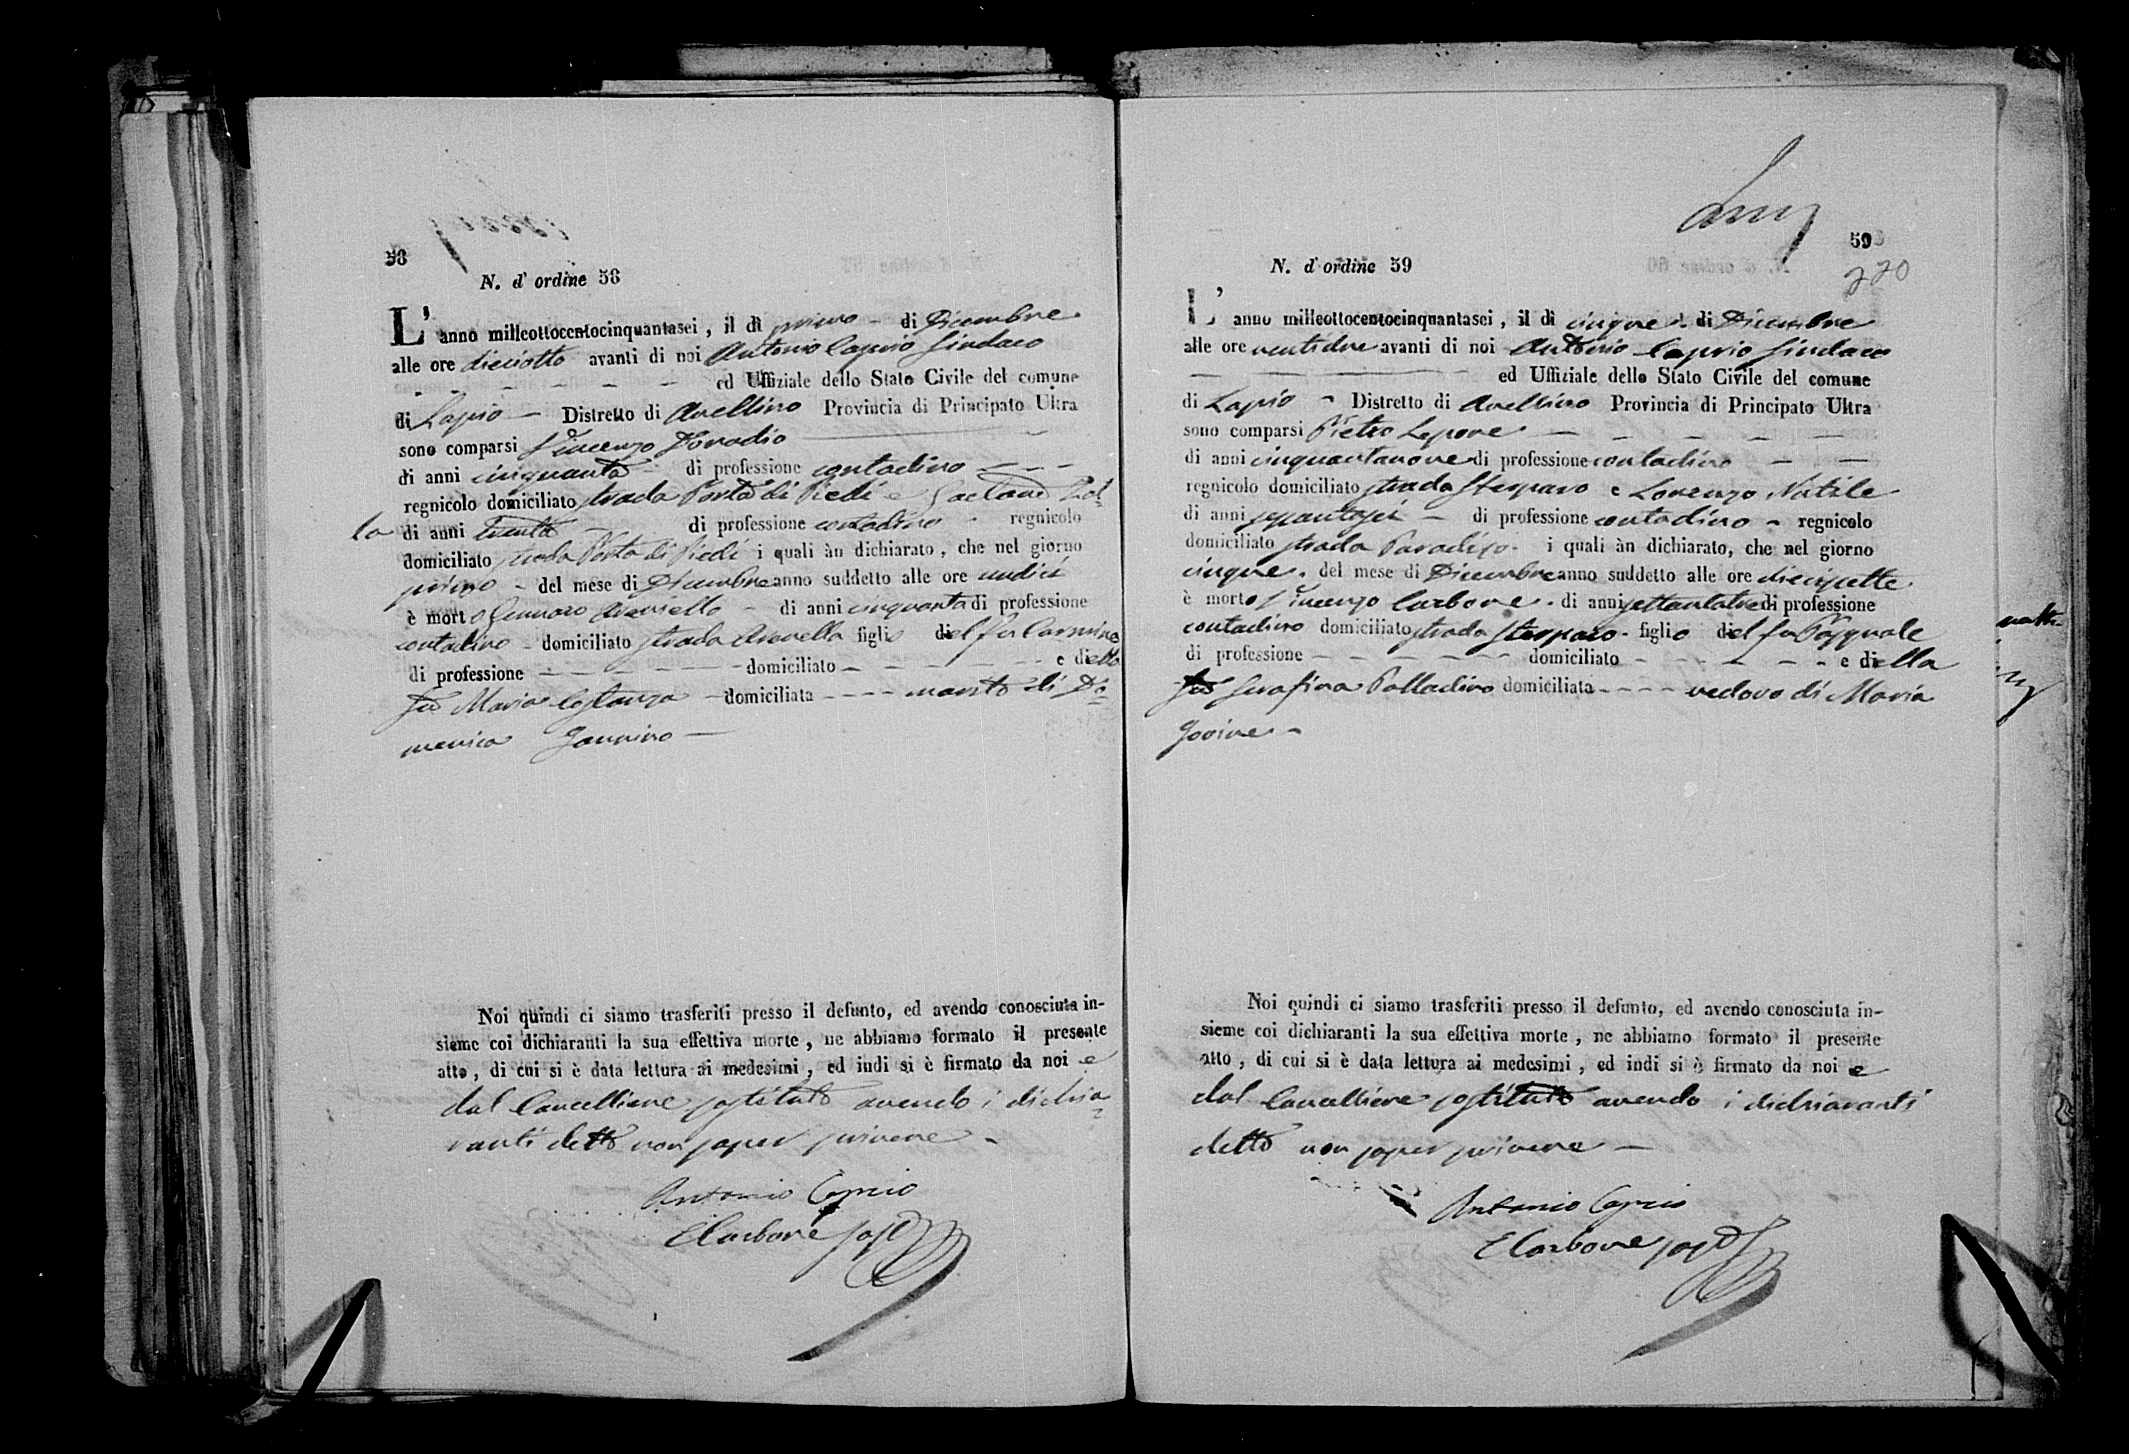 58
N. d' ordine 58
L' anno milleottocentocinquantasei, il dì primo di Dicembre
alle ore dieciotto avanti di noi Antonio Caprio Sindaco
ed Uffiziale dello Stato Civile del comune
di Lapio Distretto di Avellino Provincia di Principato Ultra
sono comparsi Vincenzo
di anni cinquanta di professione contadino
regnicolo domiciliato strada Porta di Piedi e Gaetano
la di anni trenta di professione contadino regnicolo
domiciliato strada Porta di Piedi i quali àn dichiarato, che nel giorno
primo del mese di Dicembre anno suddetto alle ore undici
è morto Gennaro di anni cinquanta di professione
contadino domiciliato strada figlio del fu Carmine
di professione domiciliato e della
fu Maria Costanza domiciliata marito di Do=
menica Jannino
Noi quindi ci siamo trasferiti presso il defunto, ed avendo conosciuta in-
sieme coi dichiaranti la sua effettiva morte, ne abbiamo formato il presente
atto, di cui si è data lettura ai medesimi, ed indi si è firmato da noi e
dal Cancelliere sostituto avendo i dichia=
ranti detto non saper scrivere
Antonio Caprio
E Carbone sost
59
220
N. d' ordine 59
L' anno milleottocentocinquantasei, il dì cinque di Dicembre
alle ore ventidue avanti di noi Antonio Caprio Sindaco
ed Uffiziale dello Stato Civile del comune
di Lapio Distretto di Avellino Provincia di Principato Ultra
sono comparsi Pietro Lepore
di anni cinquantanove di professione contadino
regnicolo domiciliato strada Sterparo e Lorenzo Natile
di anni sessantasei di professione contadino regnicolo
domiciliato strada Paradiso i quali àn dichiarato, che nel giorno
cinque del mese di Dicembre anno suddetto alle ore diecisette
è morto Vincenzo Carbone di anni settantatre di professione
contadino domiciliato strada Sterparo figlio del fu Pasquale
di professione domiciliato e della
fu Serafina Palladino domiciliata vedovo di Maria
Jovine
Noi quindi ci siamo trasferiti presso il defunto, ed avendo conosciuta in-
sieme coi dichiaranti la sua effettiva morte, ne abbiamo formato il presente
atto, di cui si è data lettura ai medesimi, ed indi si è firmato da noi e
dal Cancelliere sostituto avendo i dichiaranti
detto non saper scrivere
Antonio Caprio
E Carbone sost